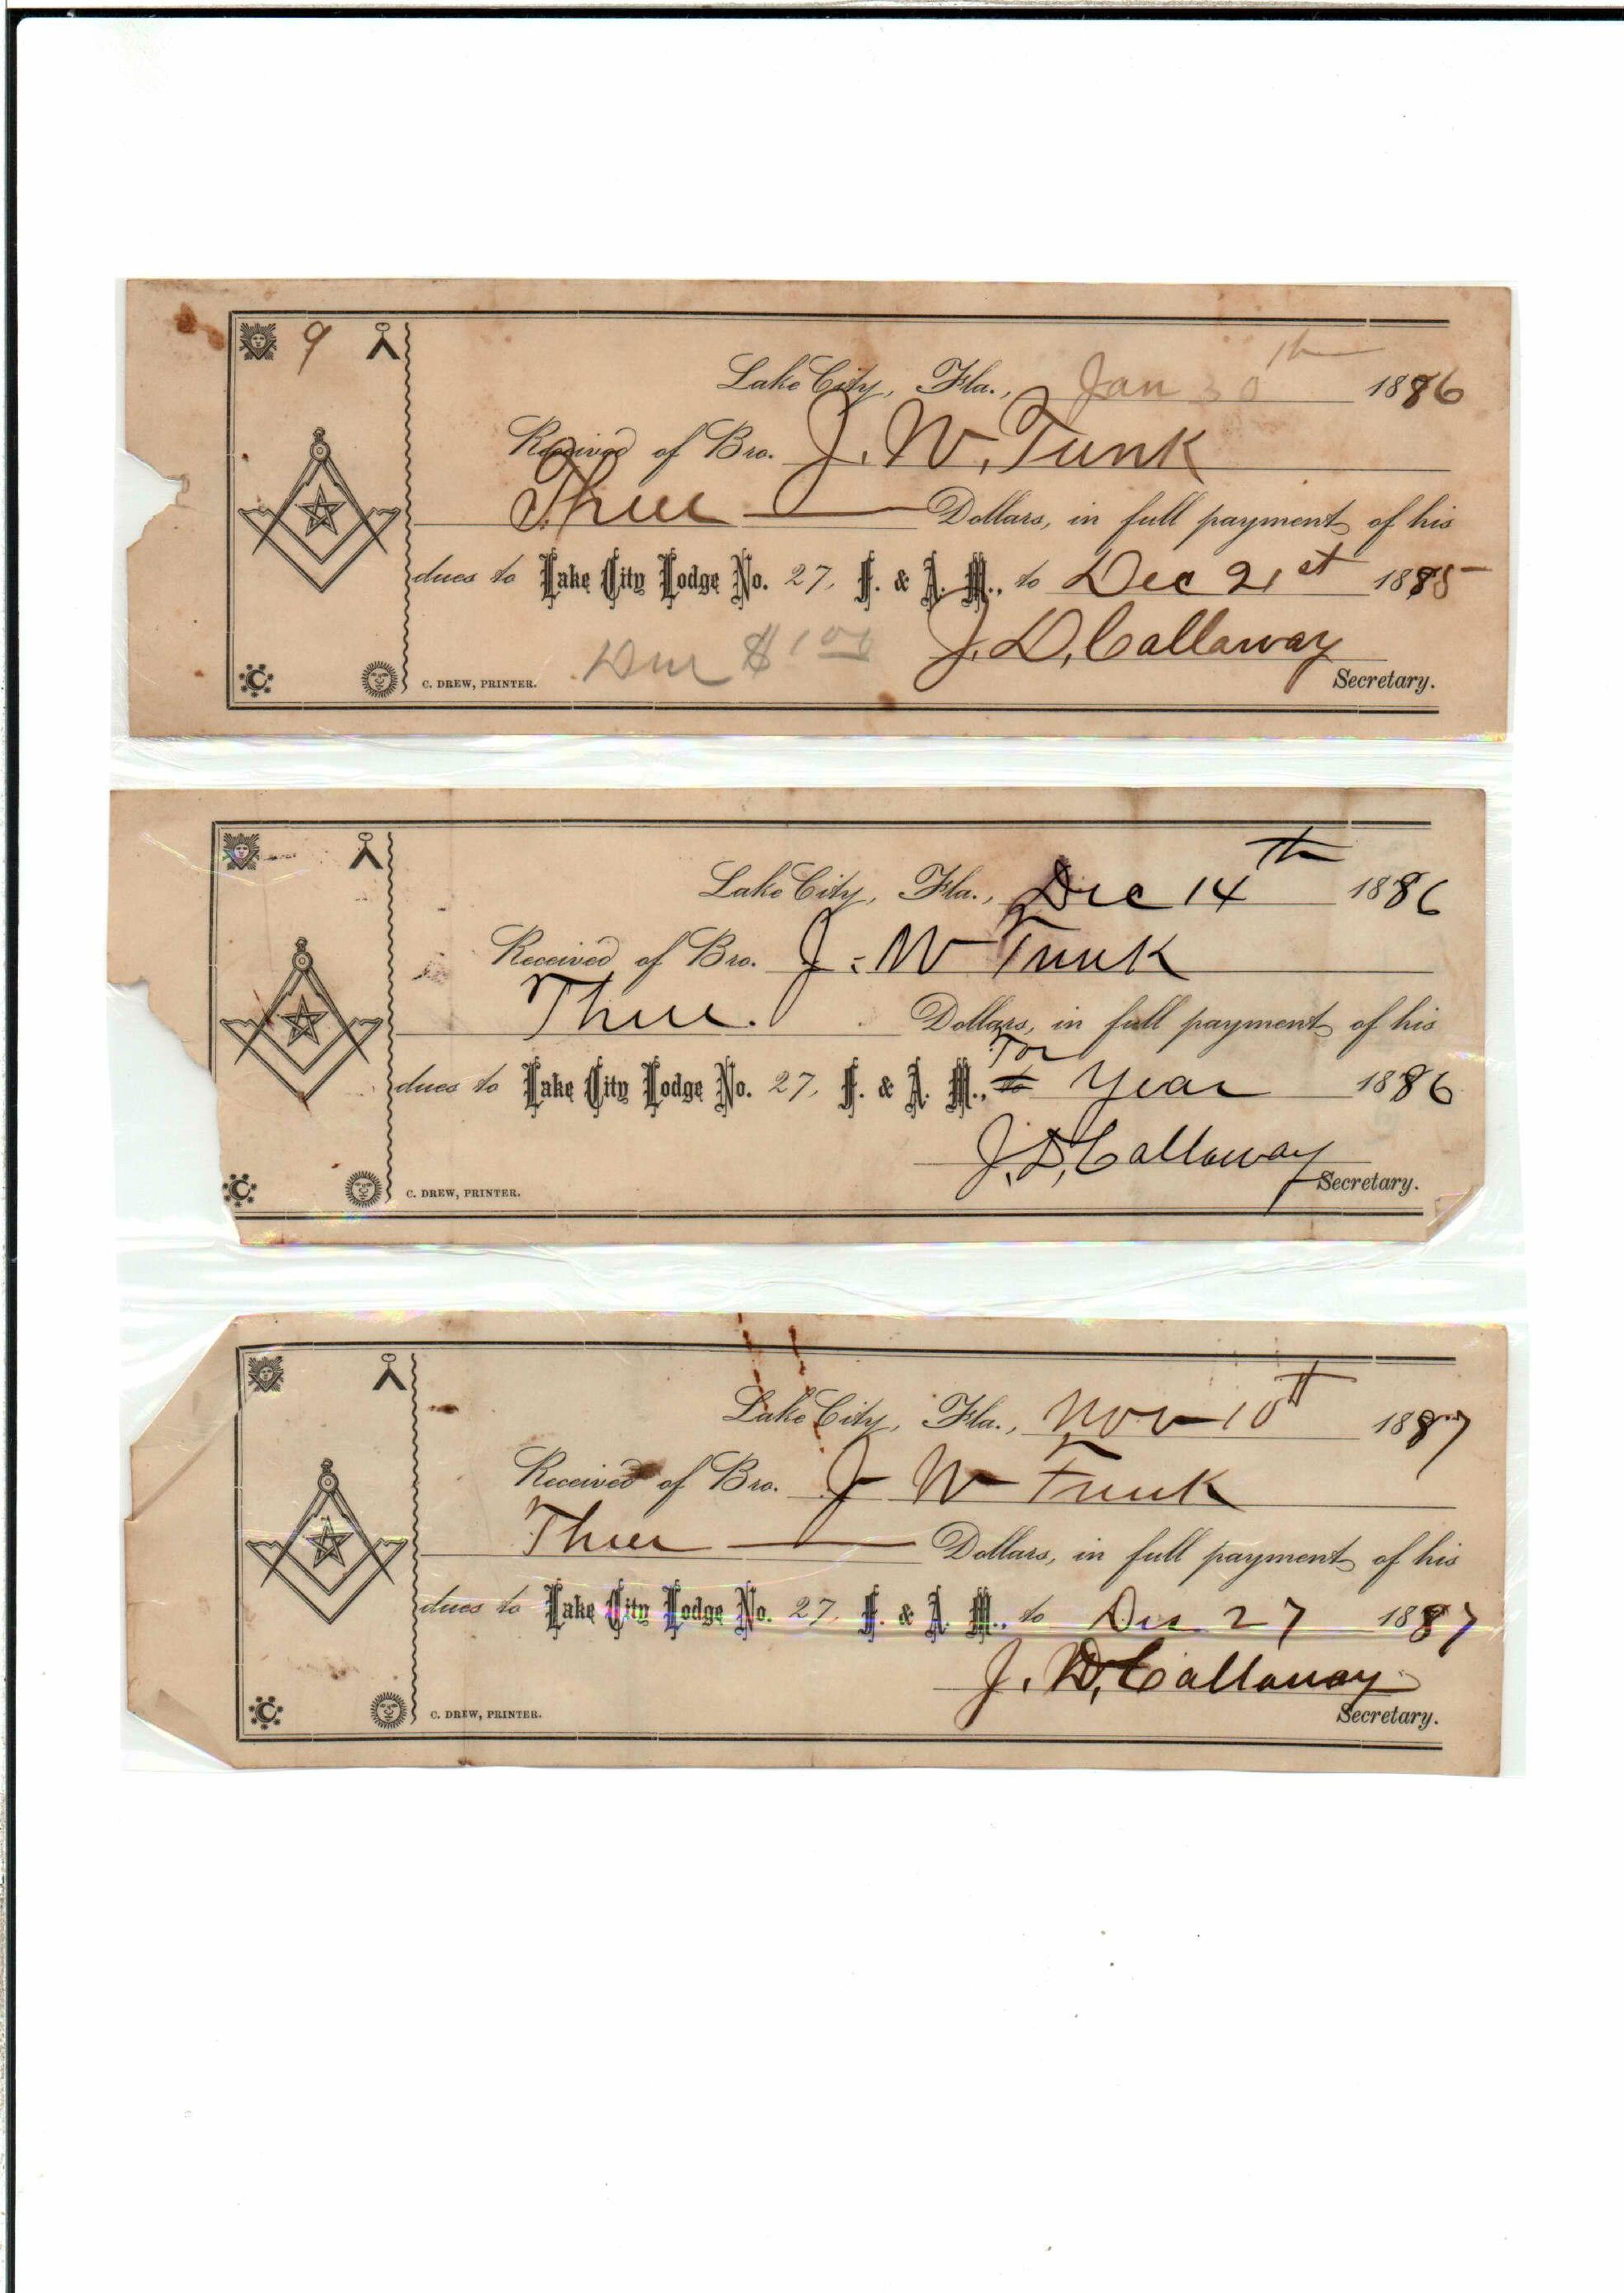 9
Lake City, Fla., Jan 30th 1886
Received of Bro. J. W. Funk
Three Dollars, in full payment of his
dues to Lake City Lodge No. 27, F. & A. M., to Dec 21st 1885
Due $1.00 J. D. Callaway
C. DREW, PRINTER. Secretary.
Lake City, Fla., Dec 14th 1886
Received of Bro. J. W Funk
Three. Dollars, in full payment of his
For
dues to Lake City Lodge No. 27, F. & A. M., to Year 1886
J. D. Callaway
C. DREW, PRINTER. Secretary.
Lake City, Fla., Nov 10th 1887
Received of Bro. J W Funk
Three Dollars, in full payment of his
dues to Lake City Lodge No. 27, F. & A. M., to Dec 27 1887
J. D. Callaway
C. DREW, PRINTER. Secretary.